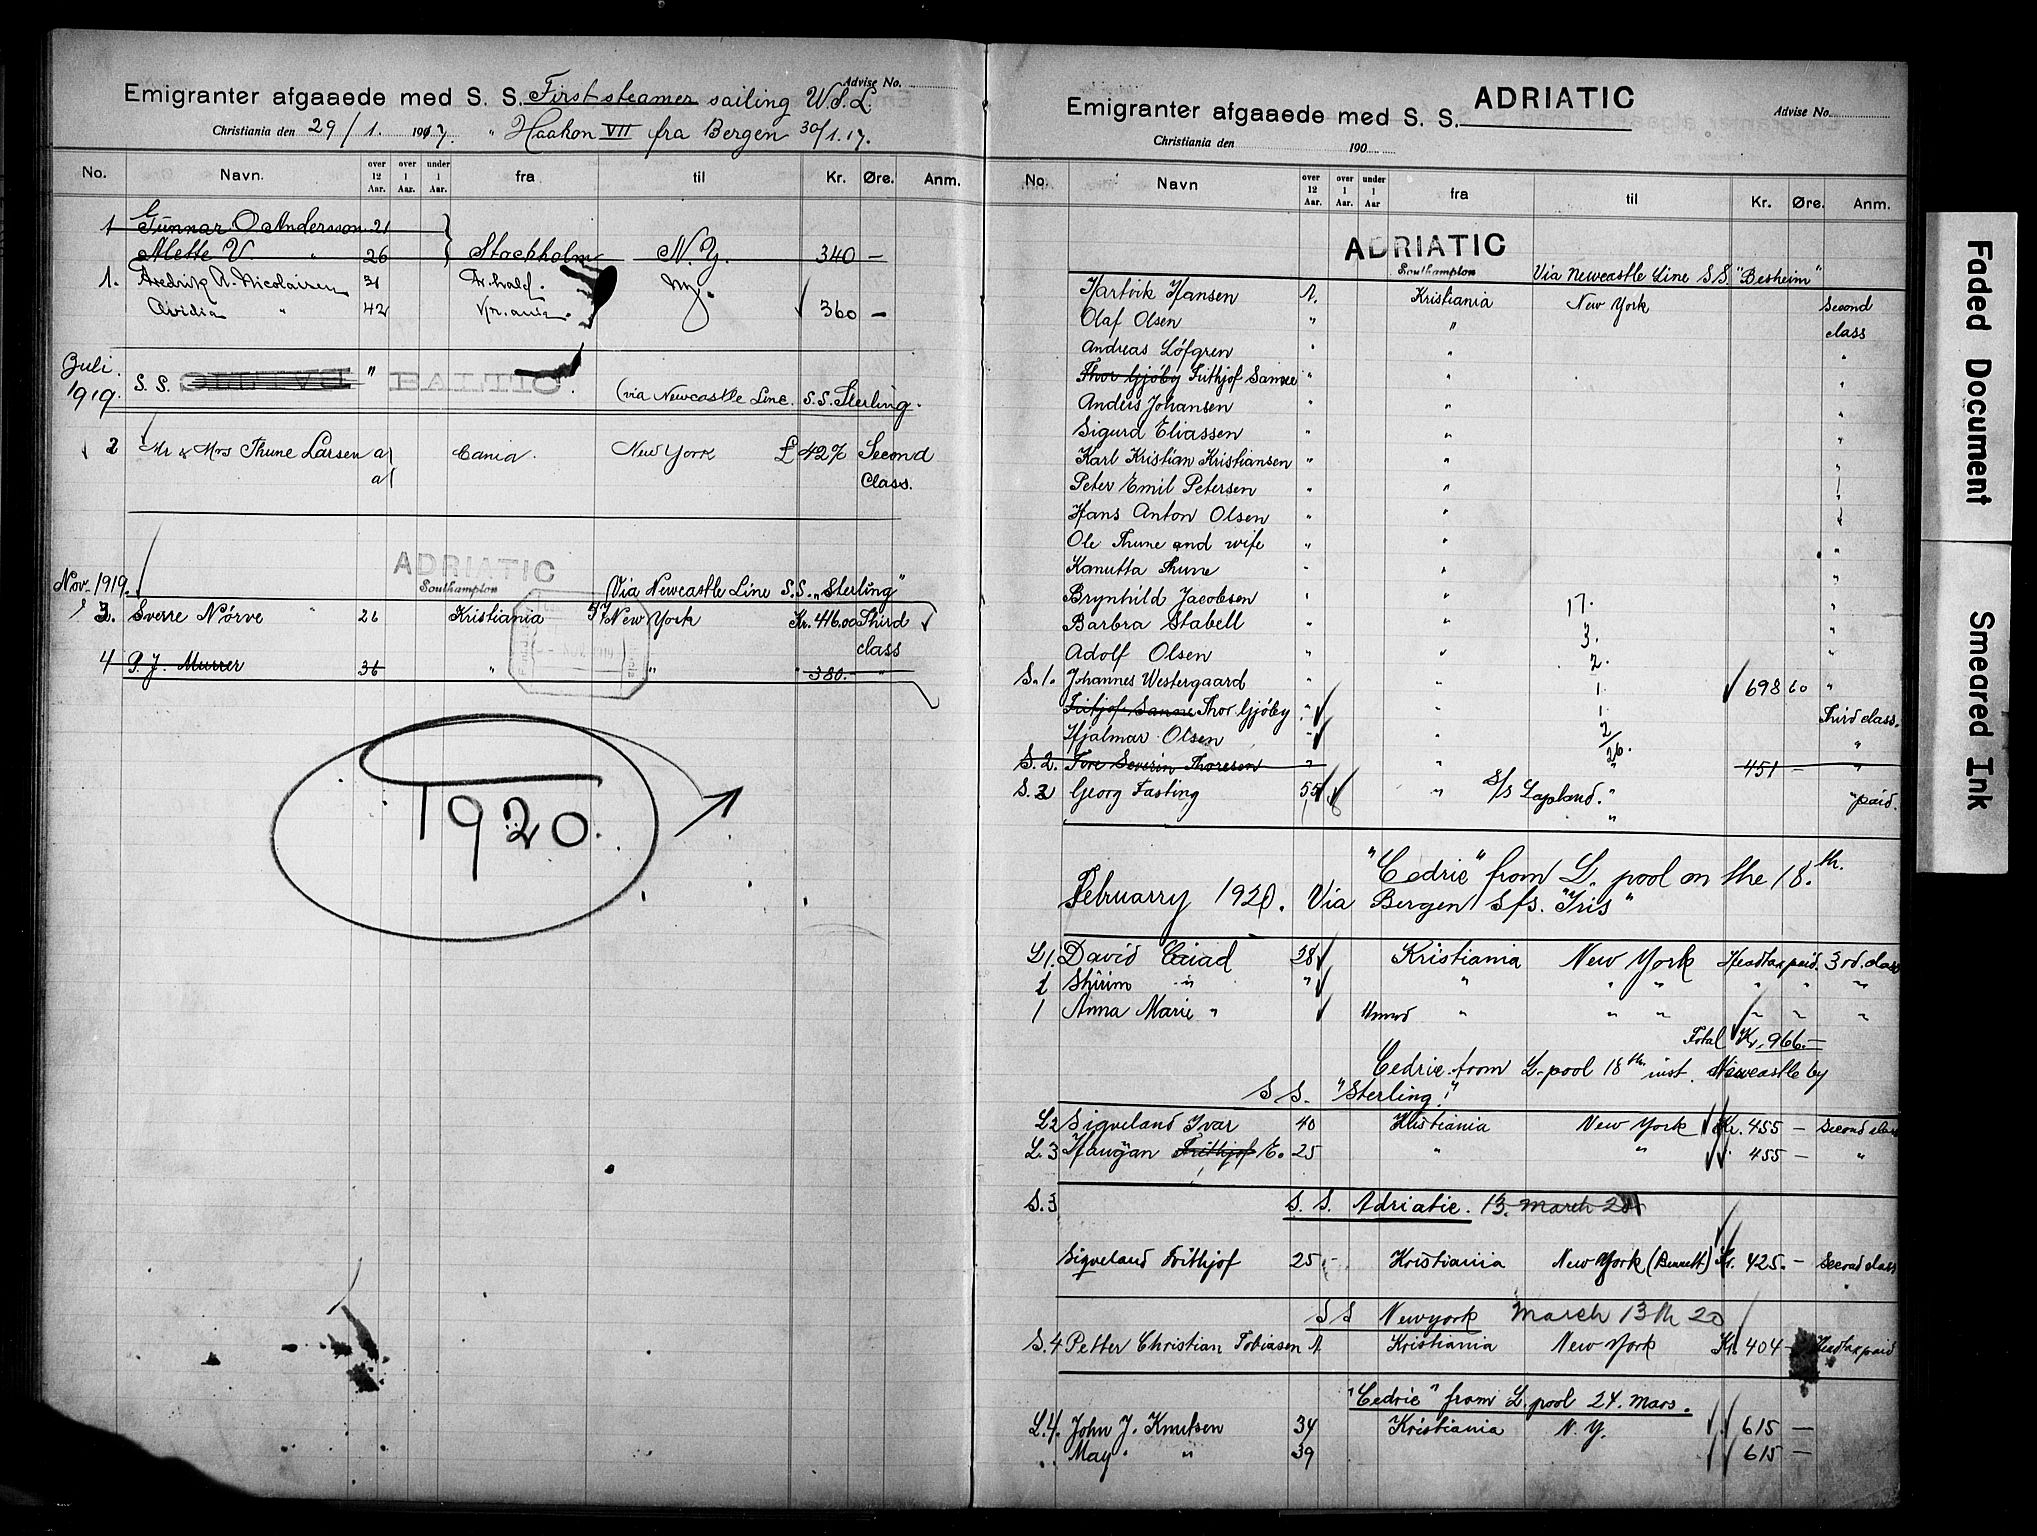 Advise No.
Emigranter afgaaede med S. S. First steamer sailing W.S.L.
Christiania den 29/1. 1917. " Haakon VII fra Bergen 30/1.17.
No. Navn. over 12 Aar. over 1 Aar. under 1 Aar. fra til Kr. Øre. Anm.
1 Gunnar O Andersson 21
Alette V. " 26 Stockholm N.Y. 340 —
1. Fredrik R. Nicolaisen 31 Fr.hald. N.Y.
Ovidia " 42 360 —
Juli 1919. S. S. BALTIC " BALTIC (via Newcastle Line. S.S. Sterling.
2 Mr & Mrs Thune Larsen a Cania. New York £ 42% Second
a Class.
ADRIATIC
Nov. 1919. Southampton (Via Newcastle Line S.S. „Sterling"
3. Sverre Nørve " 26 Kristiania New York Kr. 416.00 Third
class
4 P. J. Murrer 36 " " " 380.- "
1920.
Emigranter afgaaede med S. S. ADRIATIC
Advise No.
Christiania den 190
No. Navn over 12 Aar. over 1 Aar. under 1 Aar fra til Kr. Øre. Anm.
ADRIATIC
Southampton Via Newcastle Line S.S. "Besheim"
Hartvik Hansen A. Kristiania New York Second
Olaf Olsen " " class
Andreas Löfgren " " "
Thor Gjöby Frithjof Sanne " " "
Anders Johansen " " "
Sigurd Eliassen " " "
Karl Kristian Kristiansen " " "
Peter Emil Petersen " " "
Hans Anton Olsen " "
Ole Thune and wife " "
Kanutta Thune " " "
Brynhild Jacobsen " " 17. "
Barbra Stabell " " 3. "
Adolf Olsen " " 2. "
S.1. Johannes Westergaard " " 1. 698 60 "
Frithjof Sanne Thor Gjöby " " 1. Third class.
Hjalmar Olsen " " 2 "
26.
S.2. Tore Severin Thoresen " " " 451 - "
S.2 Georg Fasting 55 " S/S Lapland. " " paid.
"
"Cedric" from L. pool on the 18.th
Februarry 1920. Via Bergen S/S. "Iris"
L1. David Caiad 28 Kristiania New York Headtax paid. 3rd. class
1 Shirim " " " " " " " "
1 Anna Marie " " " " " " "
Total Kr. 966.—
Cedric from L-pool 18th inst. Newcastle by
S S. "Sterling."
L2 Sigveland Ivar 40 Kristiania New York Kr. 455 — Second class
L.3 Haugan Frithjof E. 25 " " 455 — "
S.3 S. S. Adriatic. 13. March 20
Sigveland Frithjof 25 - Kristiania New York (Bennett) Kr. 425. — Second class
SS Newyork March 13th 20
S.4 Petter Christian Tobiasen A Kristiania New York Kr. 404 — Headtax paid
"Cedric" from L.pool 24. Mars.
L.4. John J. Knutsen 34 Kristiania N.Y. 615 —
May " 39 615 —
Faded Document
Smeared Ink